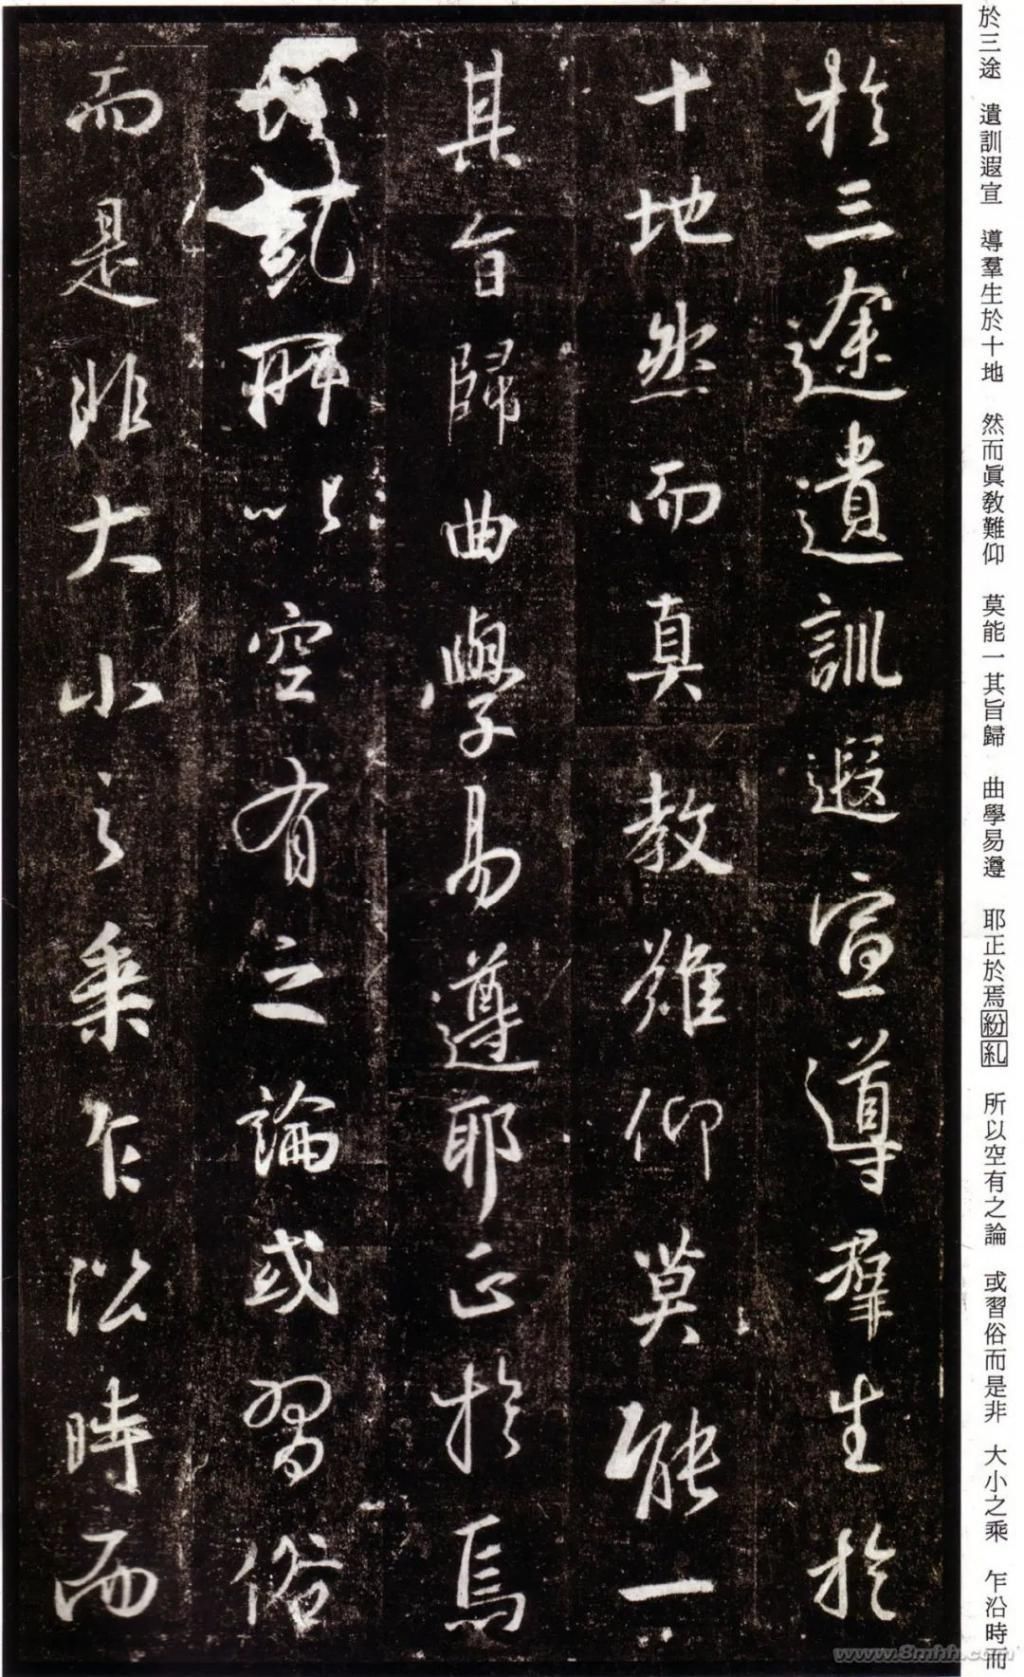 於三途 遺訓遐宣 導羣生於十地 然而眞敎難仰 莫能一其旨歸 曲學易遵 耶正於焉紛糺 所以空有之論 或習俗而是非 大小之乘 乍沿時而
於三途遺訓遐宣導羣生於
十地然而真教難仰莫能一
其旨歸曲學易遵耶正於焉
紛糺所以空有之論或習俗
而是非大小之乘乍沿時而
www.8mhh.com